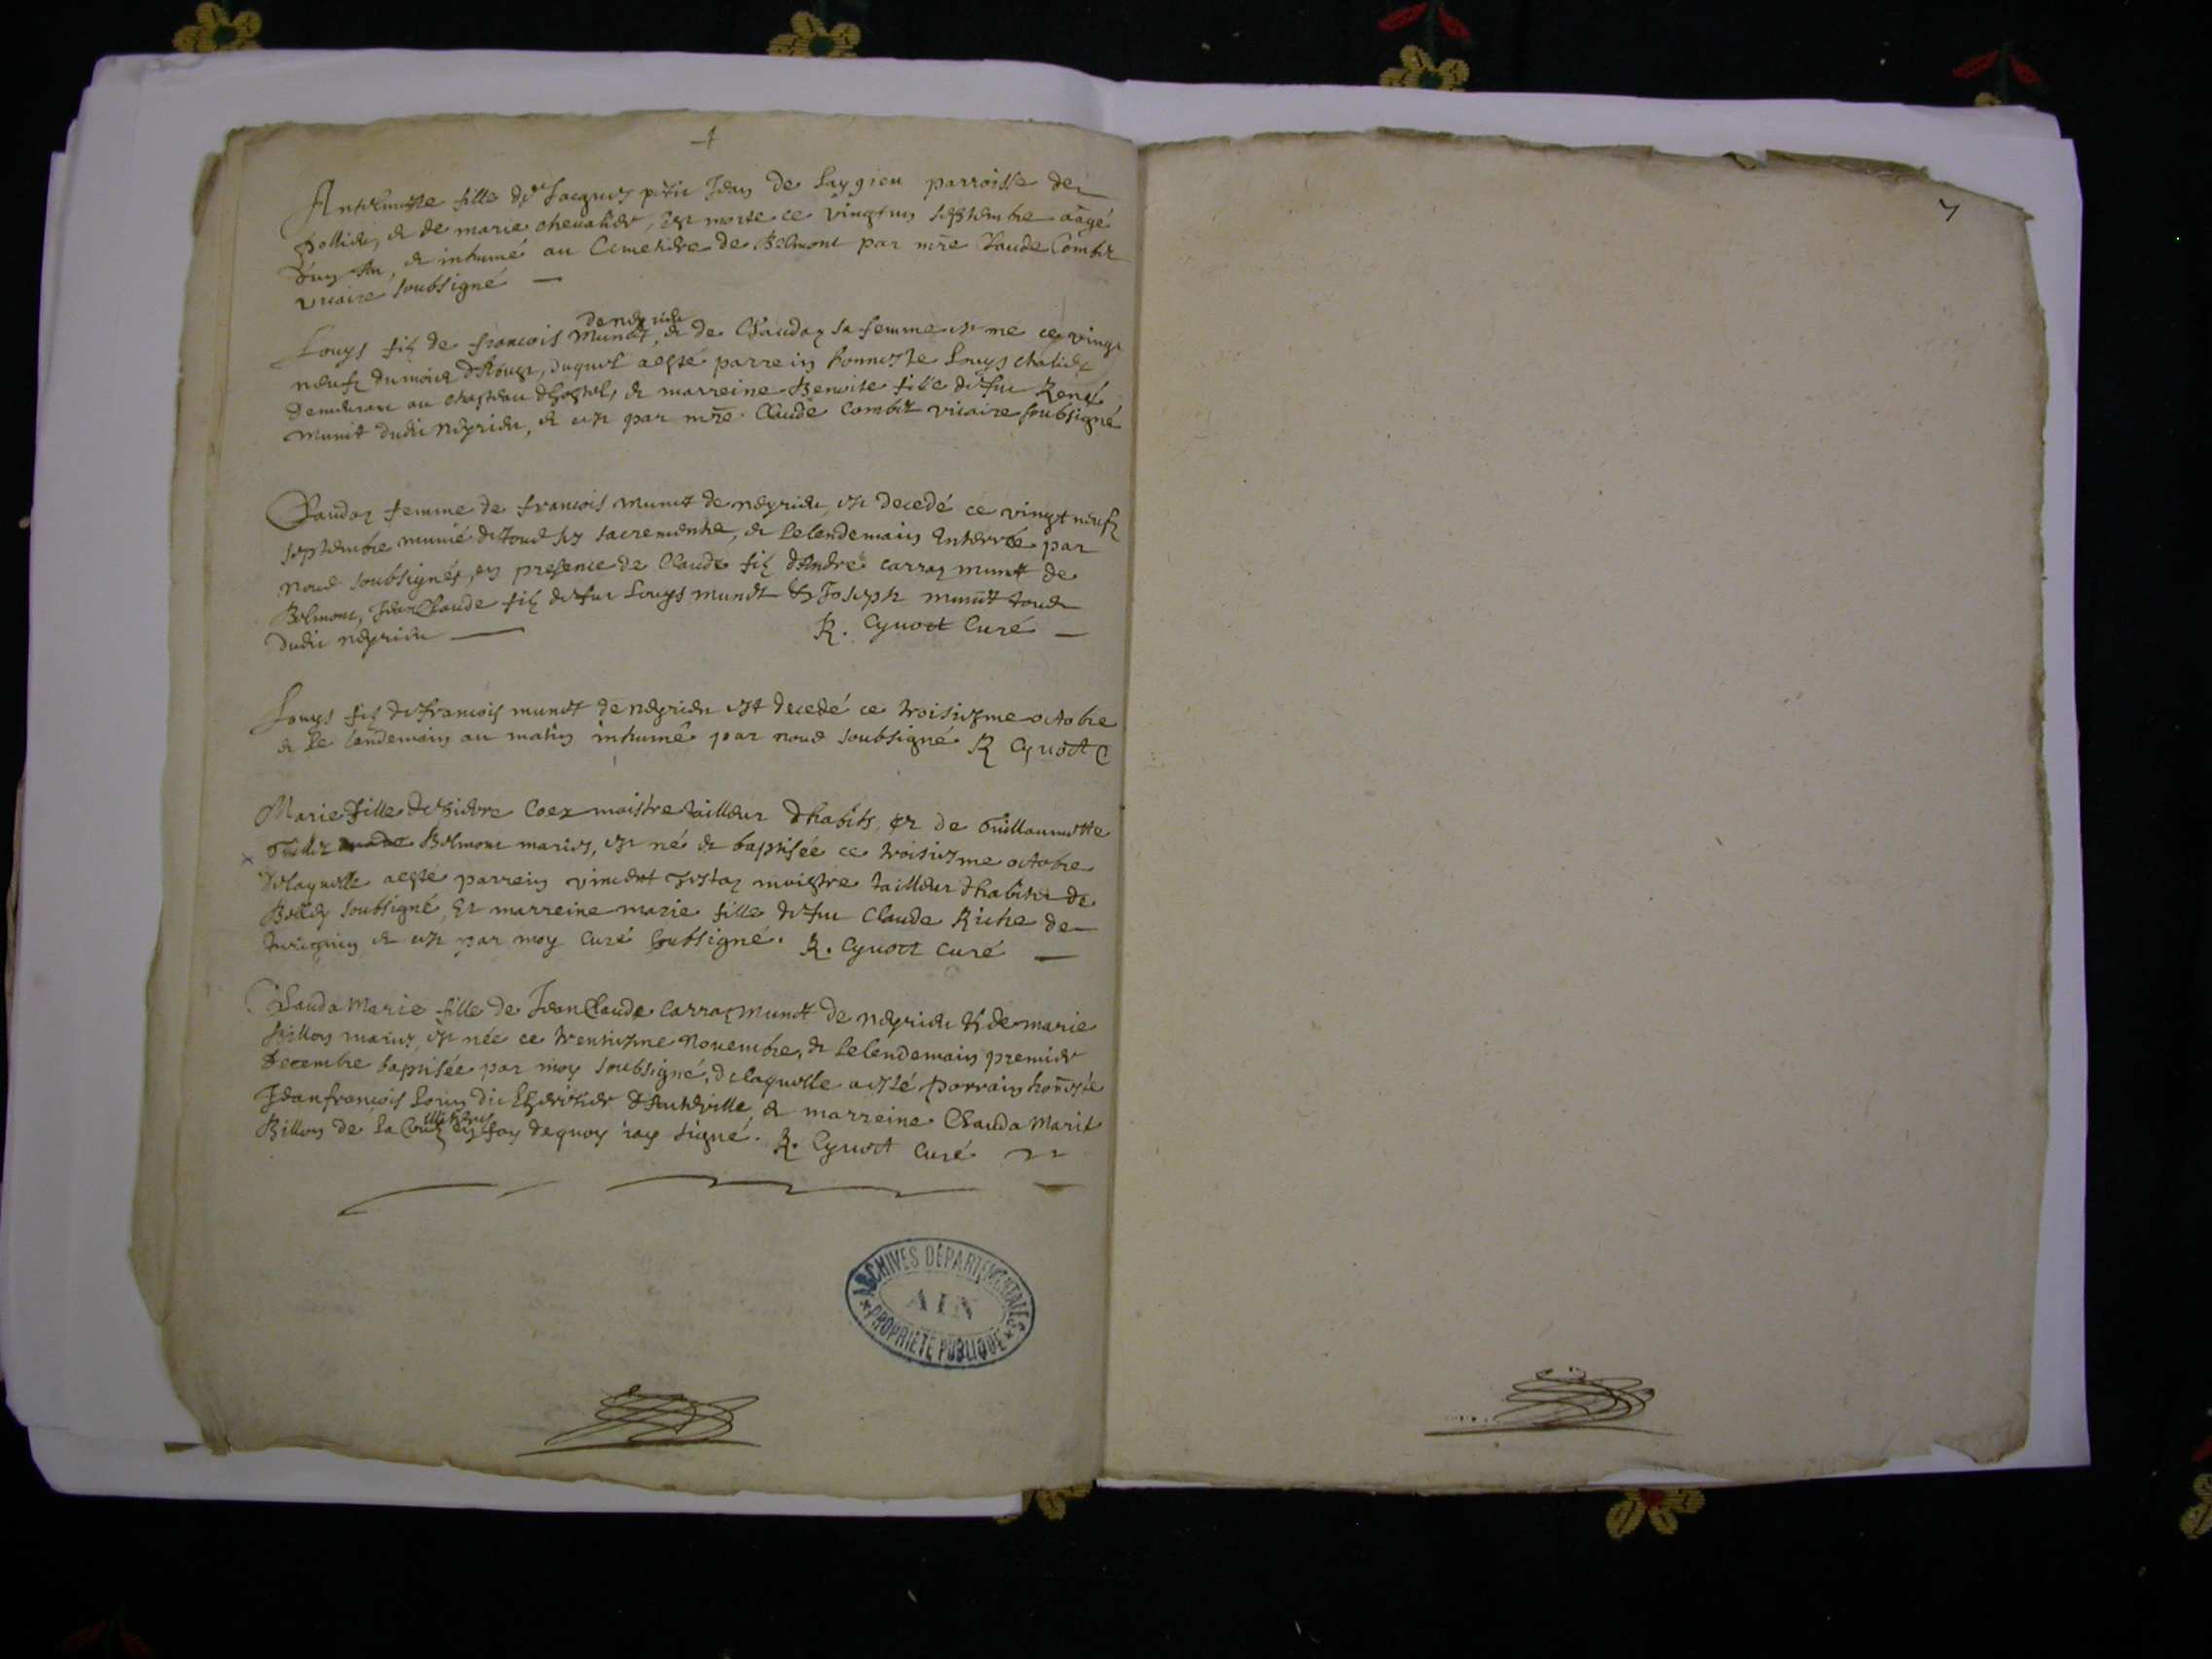 Anthelmette fille de Jacques petit Jean de Laygieu parroisse de
Pollieu, et de marie chevalier, est morte ce vingtun septembre aagé
d'un An, et inhumé au Cimetiere de Belmont par mre Claude Combet
vicaire soubsigné
de neyrieu
Louys filz de francois Munet, et de Clauday sa femme est né ce vingt
neufz du mois d'Aoust, duquel a esté parrein honneste Louys chalier
demeurant au chasteau d'hostel, et marreine Benoite fille de feu René
munet dudit neyrieu, et est par mre Claude Combet vicaire soubsigné
Clauday femme de francois munet de neyrieu, est decedé ce vingt neufz
septembre munié de tous ses sacrements, et le lendemain Enterrée par
nous soubsignés, en presence de Claude filz d'André carraz munet de
Belmont, Jean Claude filz de feu Louys munet & Joseph munet tous
dudit neyrieu
R. Cyvoct Curé
Louys filz de francois munet de neyrieu est decedé ce troisiesme octobre
et le lendemain au matin inhumé par nous soubsigné R Cyvoct C
Marie fille de Pierre Coex maistre tailleur d'habits, et de Guillaumette
Belmont mariés, est né et baptisée ce troisiesme octobre
de laquelle a esté parrein vincent maistre tailleur d'habits de
Belley soubsigné, Et marreine marie fille de feu Claude Riche de
et est par moy curé soubsigné. R. Cyvoct curé
Clauda Marie fille de Jean Claude Carraz munet de neyrieu & de marie
Billon mariés, est née ce trentiesme Novembre, et le lendemain premier
Decembre baptisée par moy soubsigné, de laquelle a esté parrain honneste
Jean francois dit d'hauteville, et marreine Clauda Marie
Billon de la en foy dequoy i'ay signé. R. Cyvoct Curé
7
ARCHIVES DÉPARTEMENTALES
AIN
PROPRIÉTÉ PUBLIQUE